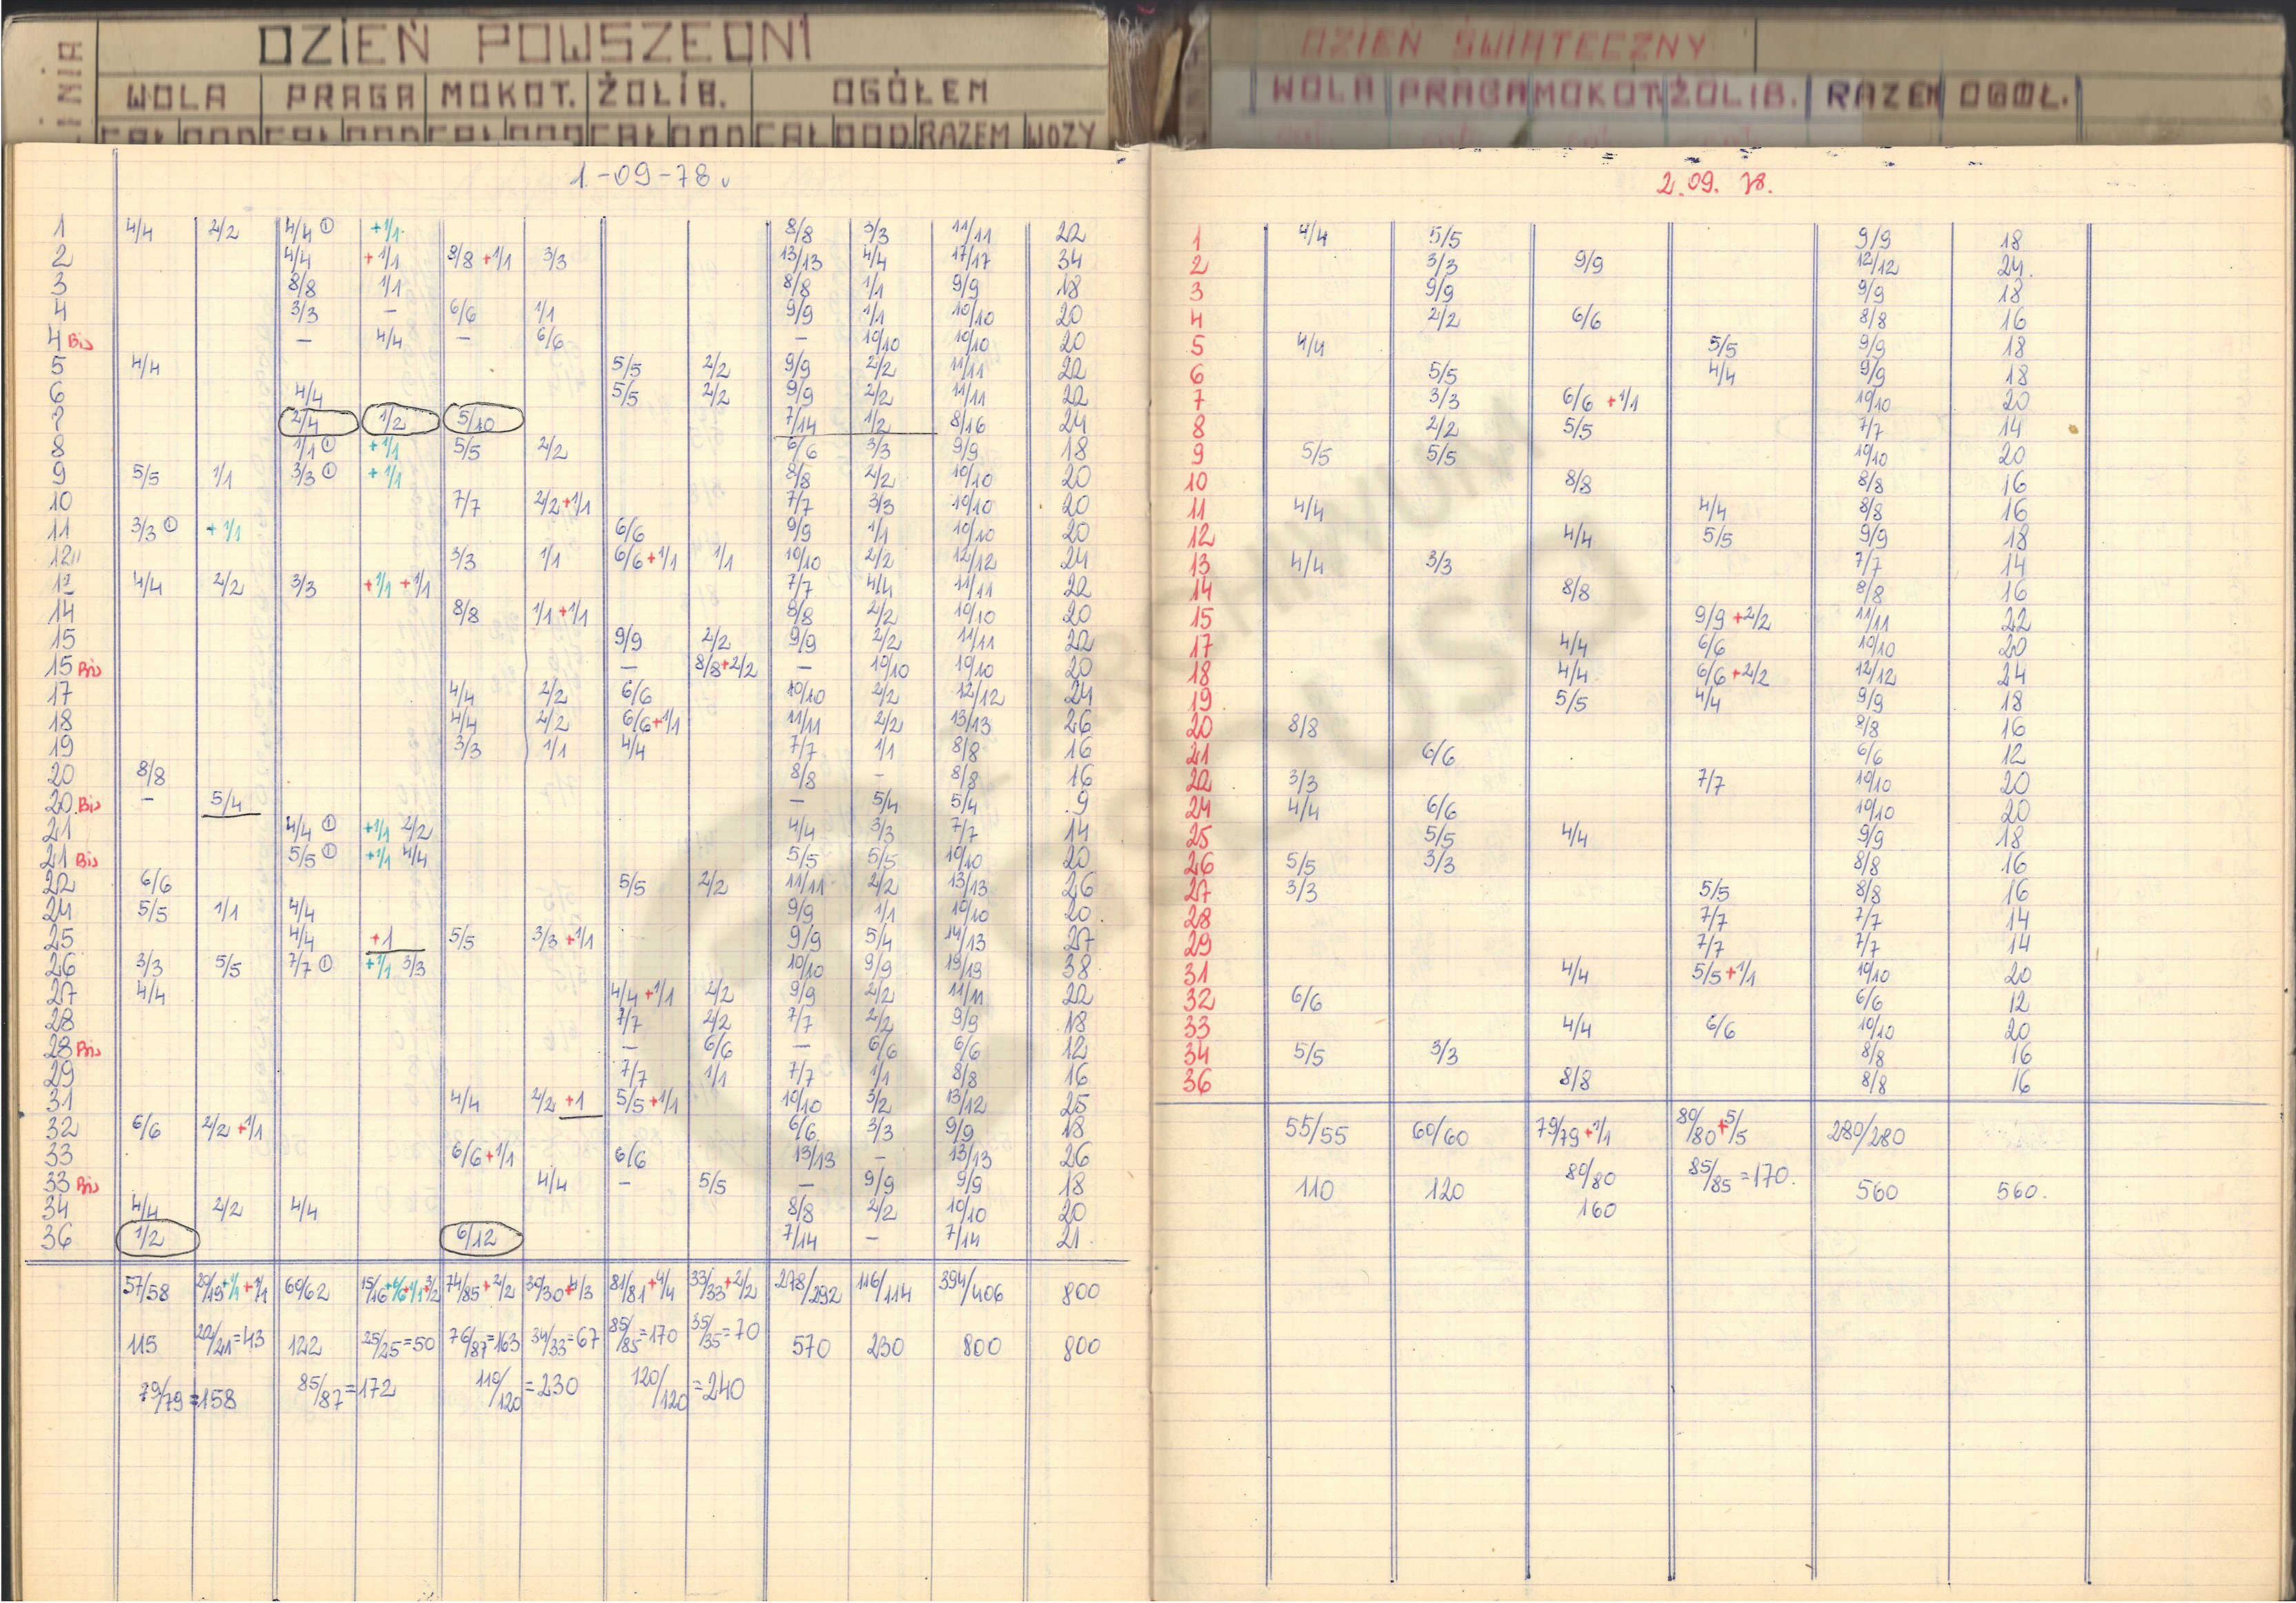 DZIEŃ POWSZEDNI
LINIA WOLA PRAGA MOKOT. ŻOLIB. OGÓŁEM
CAŁ DOD CAŁ DOD CAŁ DOD CAŁ DOD CAŁ DOD RAZEM WOZY
1-09-78
1 4/4 2/2 4/4 ① +1/1 8/8 3/3 11/11 22
2 4/4 +1/1 8/8 +1/1 3/3 13/13 4/4 17/17 34
3 8/8 1/1 8/8 1/1 9/9 18
4 3/3 – 6/6 1/1 9/9 1/1 10/10 20
4 Bis – 4/4 – 6/6 – 10/10 10/10 20
5 4/4 5/5 2/2 9/9 2/2 11/11 22
6 4/4 5/5 2/2 9/9 2/2 11/11 22
7 2/4 1/2 5/10 7/14 1/2 8/16 24
8 1/1 ① +1/1 5/5 2/2 6/6 3/3 9/9 18
9 5/5 1/1 3/3 ① +1/1 8/8 2/2 10/10 20
10 7/7 2/2+1/1 7/7 3/3 10/10 20
11 3/3 ① +1/1 6/6 9/9 1/1 10/10 20
12 3/3 1/1 6/6+1/1 1/1 10/10 2/2 12/12 24
4/4 2/2 3/3 +1/1 +1/1 7/7 4/4 11/11 22
14 8/8 1/1+1/1 8/8 2/2 10/10 20
15 9/9 2/2 9/9 2/2 11/11 22
15 Bis – 8/8+2/2 – 10/10 10/10 20
17 4/4 2/2 6/6 10/10 2/2 12/12 24
18 4/4 2/2 6/6+1/1 11/11 2/2 13/13 26
19 3/3 1/1 4/4 7/7 1/1 8/8 16
20 8/8 8/8 – 8/8 16
20 Bis – 5/4 – 5/4 5/4 9
21 4/4 ① +1/1 2/2 4/4 3/3 7/7 14
21 Bis 5/5 ① +1/1 4/4 5/5 5/5 10/10 20
22 6/6 5/5 2/2 11/11 2/2 13/13 26
24 5/5 1/1 4/4 9/9 1/1 10/10 20
25 4/4 +1 5/5 3/3+1/1 9/9 5/4 14/13 27
26 3/3 5/5 7/7 ① +1/1 3/3 10/10 9/9 19/19 38
27 4/4 4/4+1/1 2/2 9/9 2/2 11/11 22
28 7/7 2/2 7/7 2/2 9/9 18
28 Bis – 6/6 – 6/6 6/6 12
29 7/7 1/1 7/7 1/1 8/8 16
31 4/4 2/2 +1 5/5+1/1 10/10 3/2 13/12 25
32 6/6 2/2 +1/1 6/6 3/3 9/9 18
33 6/6+1/1 6/6 13/13 – 13/13 26
33 Bis 4/4 – 5/5 – 9/9 9/9 18
34 4/4 2/2 4/4 8/8 2/2 10/10 20
36 1/2 6/12 7/14 – 7/14 21
57/58 20/19+1/1+1/1 60/62 15/16+6/6+1/1+3/2 74/85+2/2 30/30+4/3 81/81+4/4 33/33+2/2 278/292 116/114 394/406 800
115 22/21=43 122 25/25=50 76/87=163 34/33=67 85/85=170 35/35=70 570 230 800 800
79/79=158 85/87=172 110/120=230 120/120=240
DZIEŃ ŚWIĄTECZNY
WOLA PRAGA MOKOT. ŻOLIB. RAZEM OGÓŁ.
2.09. 78.
1 4/4 5/5 9/9 18
2 3/3 9/9 12/12 24.
3 9/9 9/9 18
4 2/2 6/6 8/8 16
5 4/4 5/5 9/9 18
6 5/5 4/4 9/9 18
7 3/3 6/6 +1/1 10/10 20
8 2/2 5/5 7/7 14
9 5/5 5/5 10/10 20
10 8/8 8/8 16
11 4/4 4/4 8/8 16
12 4/4 5/5 9/9 18
13 4/4 3/3 7/7 14
14 8/8 8/8 16
15 9/9 +2/2 11/11 22
17 4/4 6/6 10/10 20
18 4/4 6/6+2/2 12/12 24
19 5/5 4/4 9/9 18
20 8/8 8/8 16
21 6/6 6/6 12
22 3/3 7/7 10/10 20
24 4/4 6/6 10/10 20
25 5/5 4/4 9/9 18
26 5/5 3/3 8/8 16
27 3/3 5/5 8/8 16
28 7/7 7/7 14
29 7/7 7/7 14
31 4/4 5/5+1/1 10/10 20
32 6/6 6/6 12
33 4/4 6/6 10/10 20
34 5/5 3/3 8/8 16
36 8/8 8/8 16
55/55 60/60 79/79+1/1 80/80+5/5 280/280
110 120 80/80 85/85=170. 560 560.
160